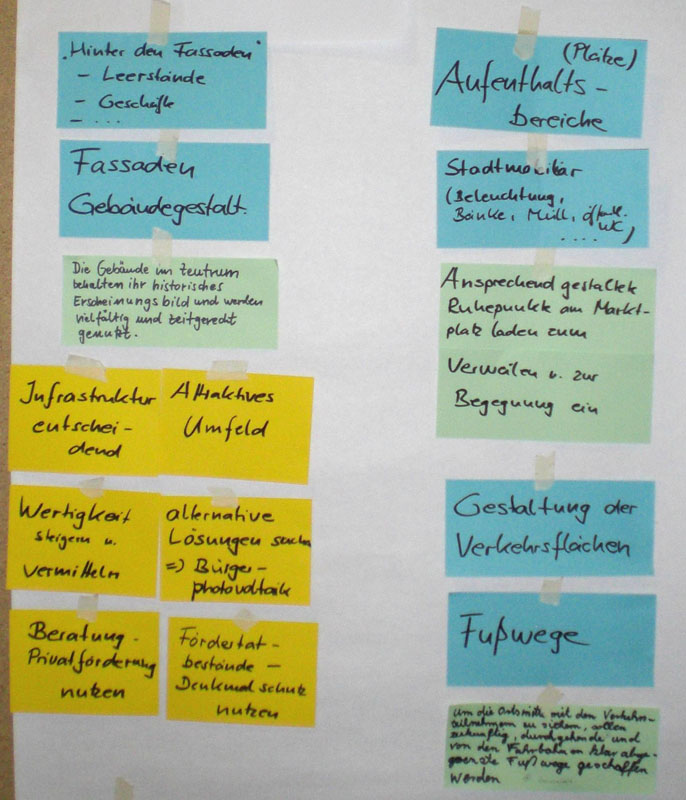 „Hinter den Fassaden"
– Leerstände
– Geschäfte
– ...
Fassaden
Gebäudegestalt.
Die Gebäude im Zentrum
behalten ihr historisches
Erscheinungsbild und werden
vielfältig und zeitgerecht
genutzt.
Infrastruktur
entschei-
dend
Attraktives
Umfeld
Wertigkeit
steigern u.
vermitteln
alternative
Lösungen suchen
=> Bürger-
photovoltaik
Beratung -
Privatförderung
nutzen
Fördertat-
bestände –
Denkmalschutz
nutzen
(Plätze)
Aufenthalts-
bereiche
Stadtmobiliar
(Beleuchtung,
Bänke, Müll, öffentl.
WC
....)
Ansprechend gestaltete
Ruhepunkte am Markt-
platz laden zum
Verweilen u. zur
Begegnung ein
Gestaltung der
Verkehrsflächen
Fußwege
Um die Ortsmitte mit den Verkehrs-
teilnehmern zu sichern, sollen
zukünftig, durchgehende und
von den Fahrbahnen klar abge-
grenzte Fußwege geschaffen
werden